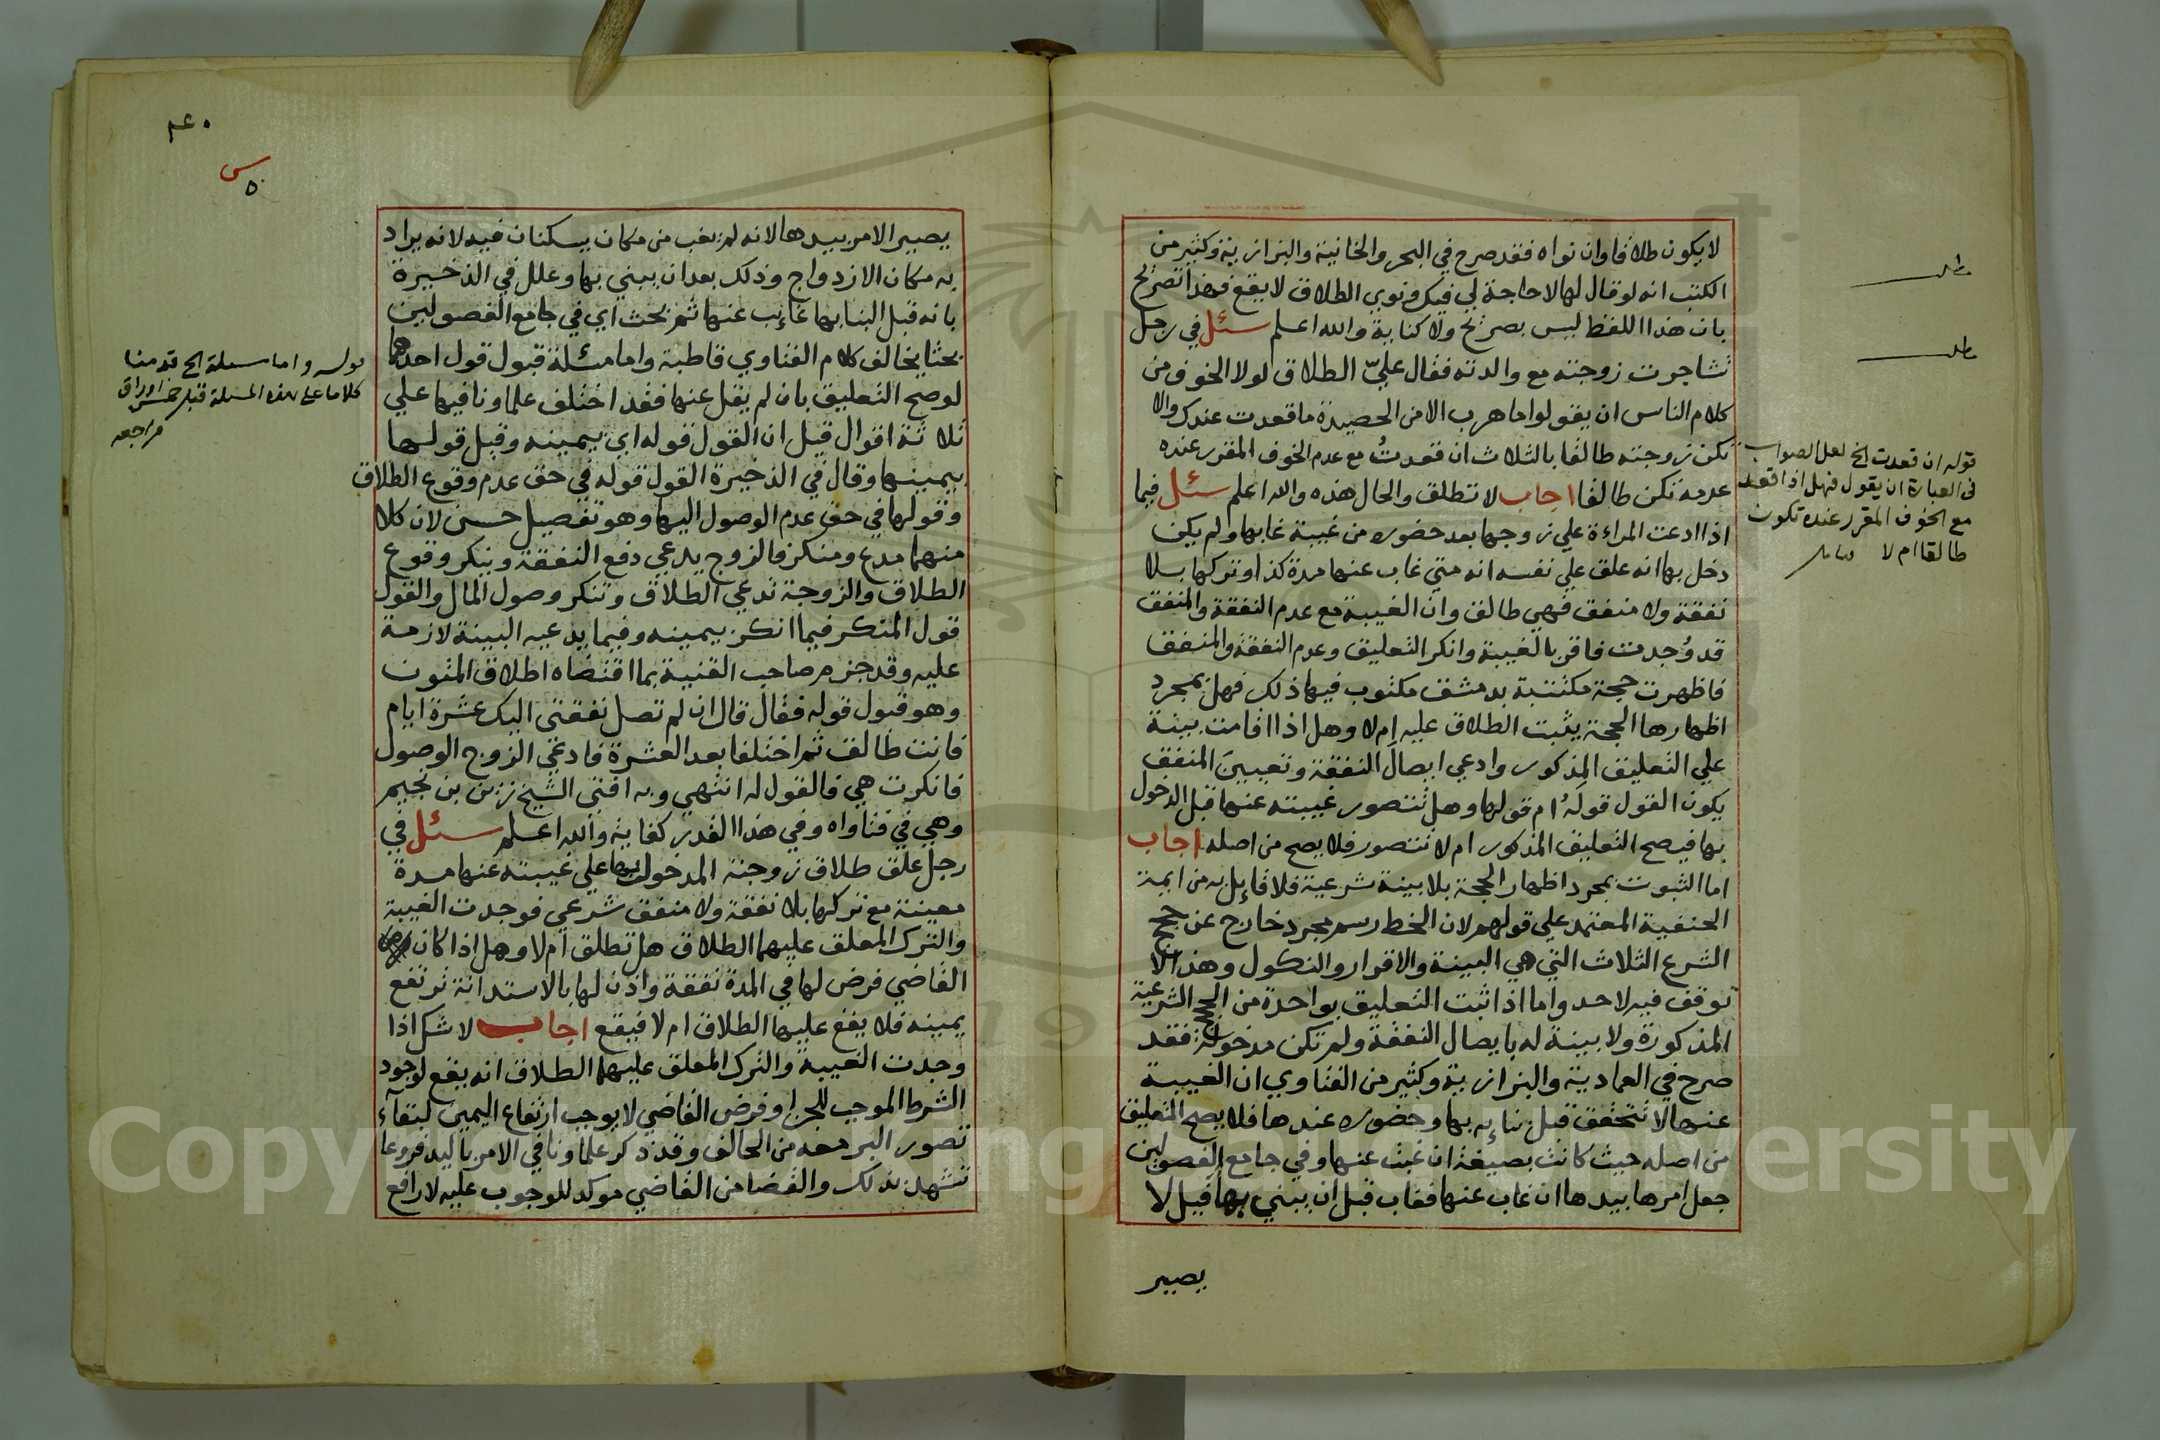 لا يكون طلاقا وان نواه فقد صرح في البحر والخانية والبزازية وكثير من
الكتب انه لو قال لها لا حاجة لي فيك ونوي الطلاق لا يقع فهذا تصريح
بان هذا اللفظ ليس بصريح ولا كناية والله اعلم سئل في رجل
تشاجرت زوجته مع والدته فقال عليّ الطلاق لولا الخوف من
كلام الناس ان يقولوا ما هرب الا من الحصيدة ما قعدت عندك والا
تكن زوجته طالقا بالثلاث ان قعدتُ مع عدم الخوف المقرر عنده
عدمه تكن طالقا اجاب لا تطلق والحال هذه والله اعلم سئل فيما
اذا ادعت المراءة علي زوجها بعد حضوره من غيبة غابها ولم يكن
دخل بها انه علق علي نفسه انه متي غاب عنها مدة كذا وتركها بلا
نفقة ولا منفق فهي طالق وان الغيبة مع عدم النفقة والمنفق
قد وُجدت فاقر بالغيبة وانكر التعليق وعدم النفقة والمنفق
فاظهرت حجة مكتتبة بدمشق مكتوب فيها ذلك فهل بمجرد
اظهارها الحجة يثبت الطلاق عليه ام لا وهل اذا اقامت بينة
علي التعليق المذكور وادعي ايصال النفقة وتعيين المنفق
يكون القول قولَهُ ام قولها وهل تتصور غيبته عنها قبل الدخول
بها فيصح التعليق المذكور ام لا تتصور فلا يصح من اصله اجاب
اما الثبوت بمجرد اظهار الحجة بلا بينة شرعية فلا قايل به من ايمة
الحنفية المعتمد علي قولهم لان الخط رسم مجرد خارج عن حجج
الشرع الثلاث التي هي البينة والاقرار والنكول وهذا لا
توقف فيه لاحد واما اذا ثبت التعليق بواحدة من الحجج الشرعية
المذكورة ولا بينة له بايصال النفقة ولم تكن مدخولة فقد
صرح في العمادية والبزازية وكثير من الفتاوي ان الغيبة
عنها لا تتحقق قبل بنايه بها وحضوره عندها فلا يصح التعليق
من اصله حيث كانت بصيغة ان غبت عنها وفي جامع الفصولين
جعل امرها بيدها ان غاب عنها فغاب قبل ان يبني بها قيل لا
يصير
قوله ان قعدت الخ لعل الصواب
في العبارة ان يقول فهل اذا قعد
مع الخوف المقرر عنده تكون
طالقا ام لا
٤٠
يصير الامر بيدها لانه لم يغب من مكان يسكنان فيه لانه يراد
به مكان الازدواج وذلك بعد ان يبني بها وعلل في الذخيرة
بانه قبل البنا بها غايب عنها ثم بحث اي في جامع الفصولين
بحثا يخالف كلام الفتاوي قاطبة واما مسئلة قبول قول احدهما
لو صح التعليق بان لم يقل عنها فقد اختلف علماونا فيها علي
ثلاثة اقوال قيل ان القول قوله اي بيمينه وقيل قولها
بيمينها وقال في الذخيرة القول قوله في حق عدم وقوع الطلاق
وقولها في حق عدم الوصول اليها وهو تفصيل حسن لان كلا
منهما مدع ومنكر فالزوج يدعي دفع النفقة وينكر وقوع
الطلاق والزوجة تدعي الطلاق وتنكر وصول المال والقول
قول المنكر فيما انكر بيمينه وفيما يدعيه البينة لازمة
عليه وقد جزم صاحب القنية بما اقتضاه اطلاق المتون
وهو قبول قوله فقال قال ان لم تصل نفقتي اليك عشرة ايام
فانت طالق ثم اختلفا بعد العشرة فادعي الزوج الوصول
فانكرت هي فالقول له انتهي وبه افتي الشيخ زين بن نجيم
وهي في فتاواه وفي هذا القدر كفاية والله اعلم سئل في
رجل علق طلاق زوجته المدخول بها علي غيبته عنها مدة
معينة مع تركها بلا نفقة ولا منفق شرعي فوجدت الغيبة
والترك المعلق عليهما الطلاق هل تطلق ام لا وهل اذا كان
القاضي فرض لها في المدة نفقة واذن لها بالاستدانة ترتفع
يمينه فلا يقع عليها الطلاق ام لا فيقع اجاب لا شك اذا
وجدت الغيبة والترك المعلق عليهما الطلاق انه يقع لوجود
الشرط الموجب للجزا وفرض القاضي لا يوجب ارتفاع اليمين لبقآء
تصور البر معه من الحالف وقد ذكر علماونا في الامر باليد فروعا
تشهد بذلك والقضا من القاضي موكد للوجوب عليه لا رافع
قوله واما مسئلة الخ قدمنا
كلاما علي هذه المسئلة قبل خمس اوراق
فراجعه
Copyright © King Saud University